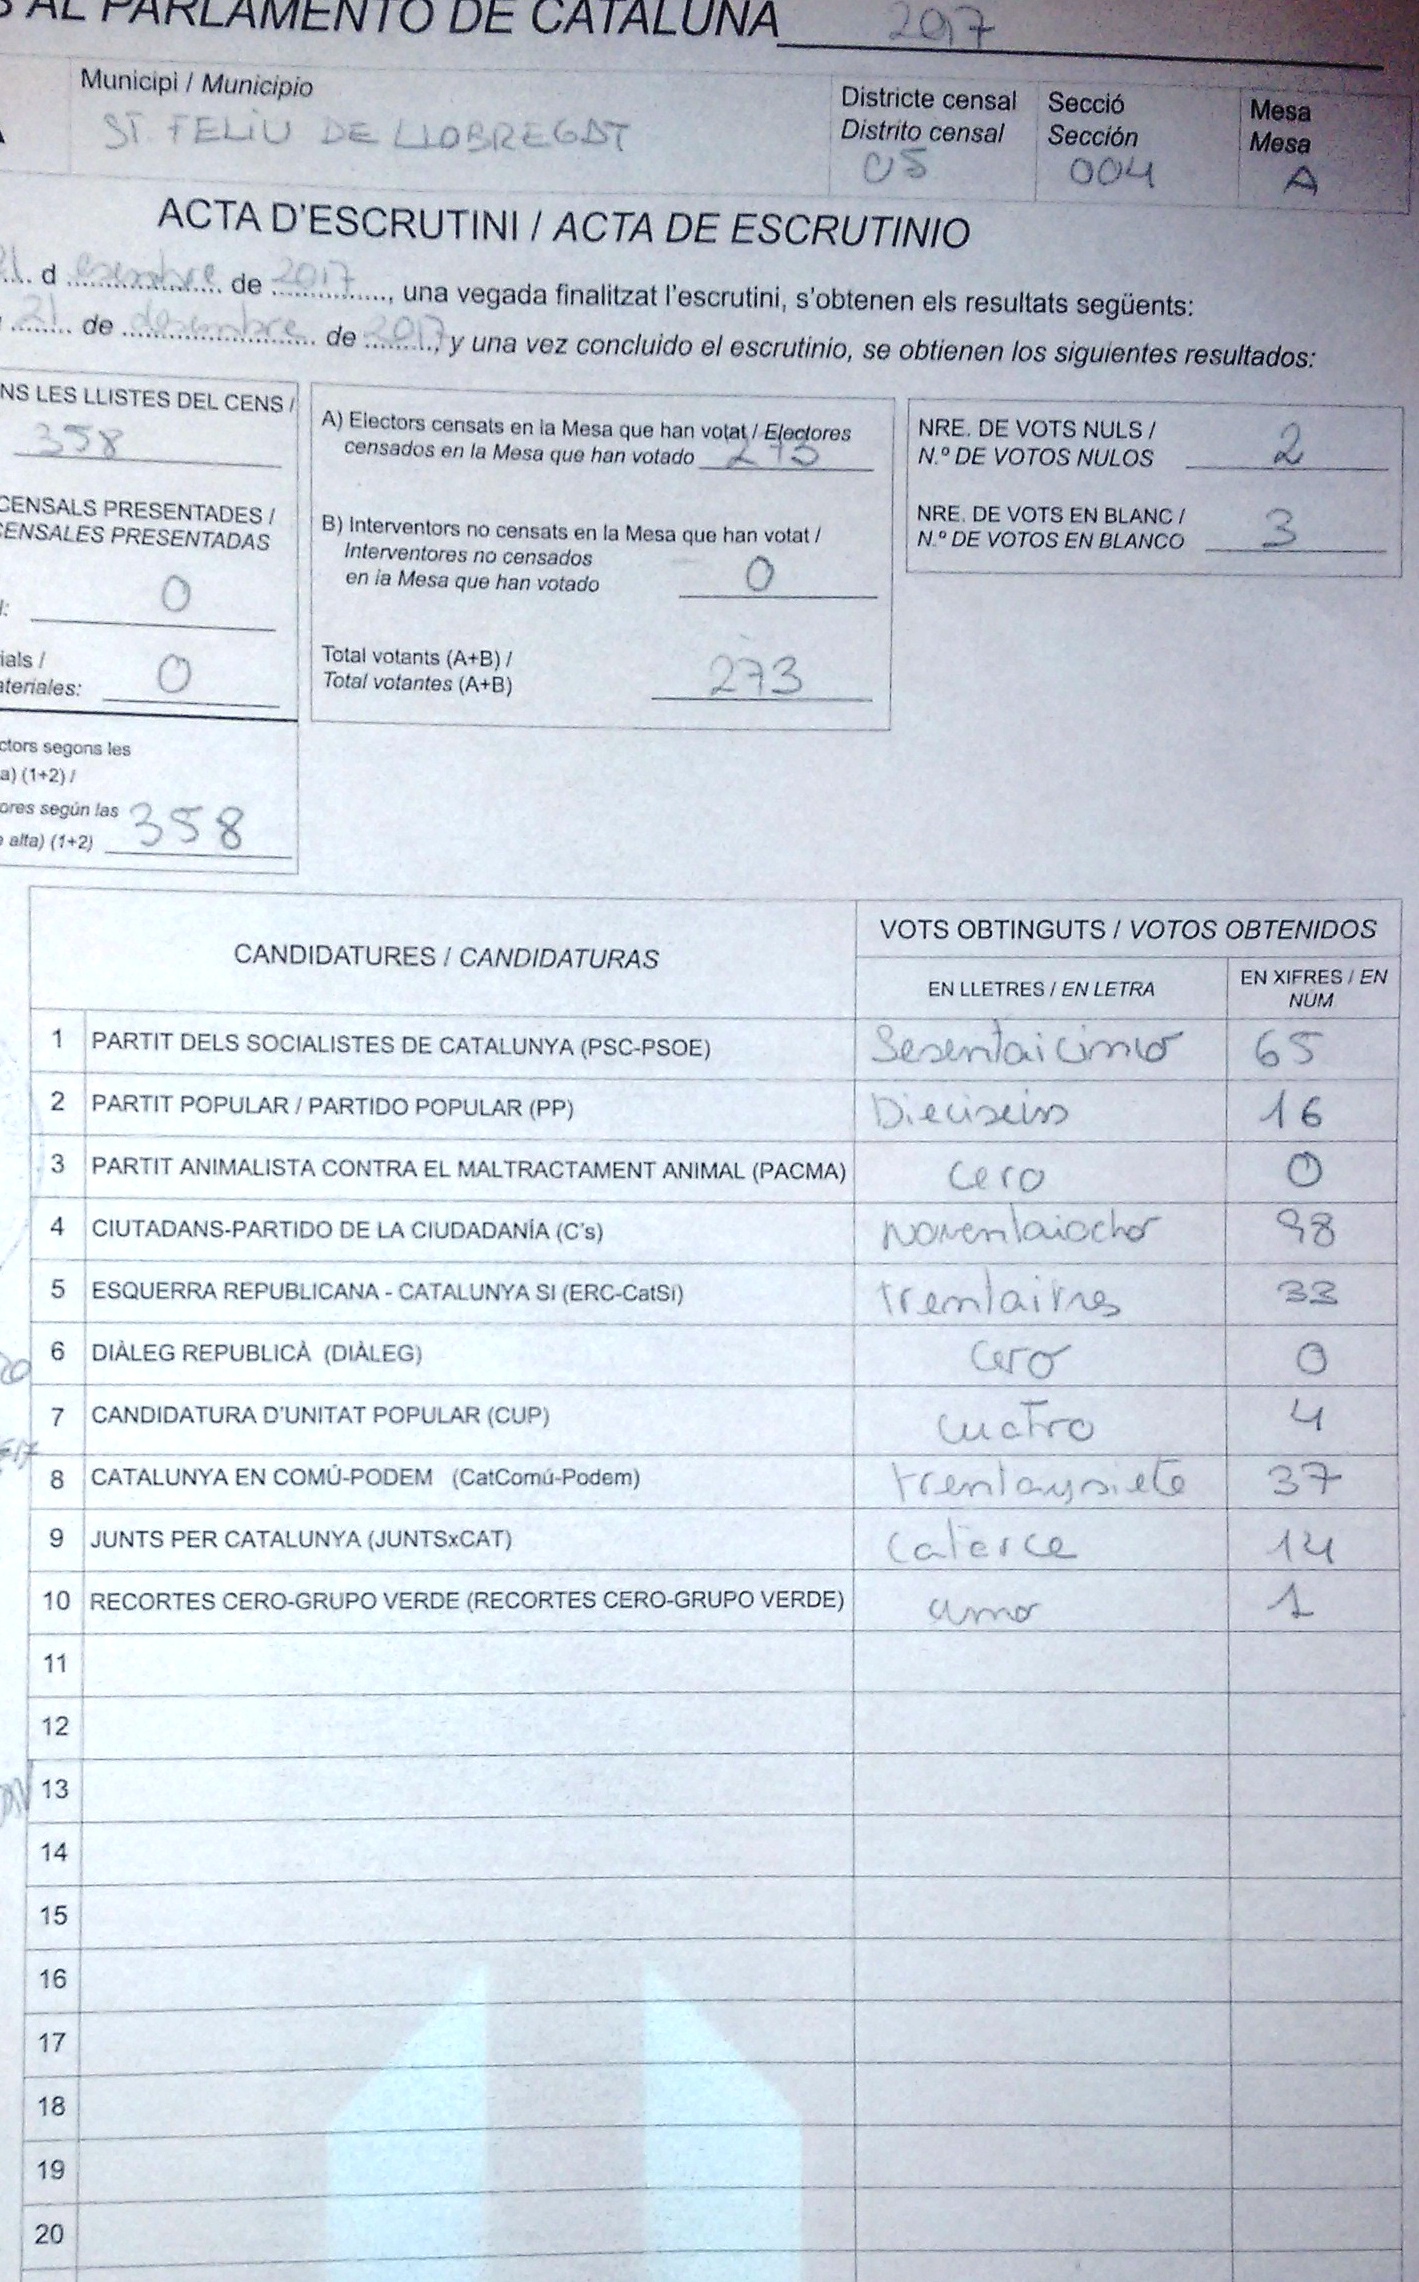 AL PARLAMENTO DE CATALUÑA 2017
Municipi / Municipio
ST. FELIU DE LLOBREGAT
Districte censal
Distrito censal
05
Secció
Sección
004
Mesa
Mesa
A
ACTA D'ESCRUTINI / ACTA DE ESCRUTINIO
21 d esembre de 2017, una vegada finalitzat l'escrutini, s'obtenen els resultats següents:
21 de desembre de 2017, y una vez concluido el escrutinio, se obtienen los siguientes resultados:
NS LES LLISTES DEL CENS /
358
CENSALS PRESENTADES /
CENSALES PRESENTADAS
0
ials /
ateriales: 0
ctors segons les
a) (1+2) /
ores según las
alta) (1+2) 358
A) Electors censats en la Mesa que han votat / Electores
censados en la Mesa que han votado 273
B) Interventors no censats en la Mesa que han votat /
Interventores no censados
en la Mesa que han votado 0
Total votants (A+B) /
Total votantes (A+B) 273
NRE. DE VOTS NULS /
N.º DE VOTOS NULOS 2
NRE. DE VOTS EN BLANC /
N.º DE VOTOS EN BLANCO 3
CANDIDATURES / CANDIDATURAS
VOTS OBTINGUTS / VOTOS OBTENIDOS
EN LLETRES / EN LETRA
EN XIFRES / EN
NÚM
1 PARTIT DELS SOCIALISTES DE CATALUNYA (PSC-PSOE) Sesentaicinco 65
2 PARTIT POPULAR / PARTIDO POPULAR (PP) Dieciseis 16
3 PARTIT ANIMALISTA CONTRA EL MALTRACTAMENT ANIMAL (PACMA) Cero 0
4 CIUTADANS-PARTIDO DE LA CIUDADANÍA (C's) noventaiocho 98
5 ESQUERRA REPUBLICANA - CATALUNYA SI (ERC-CatSí) trentaitres 33
6 DIÀLEG REPUBLICÀ (DIÀLEG) Cero 0
7 CANDIDATURA D'UNITAT POPULAR (CUP) cuatro 4
8 CATALUNYA EN COMÚ-PODEM (CatComú-Podem) trentaysiete 37
9 JUNTS PER CATALUNYA (JUNTSxCAT) Catorce 14
10 RECORTES CERO-GRUPO VERDE (RECORTES CERO-GRUPO VERDE) uno 1
11
12
13
14
15
16
17
18
19
20